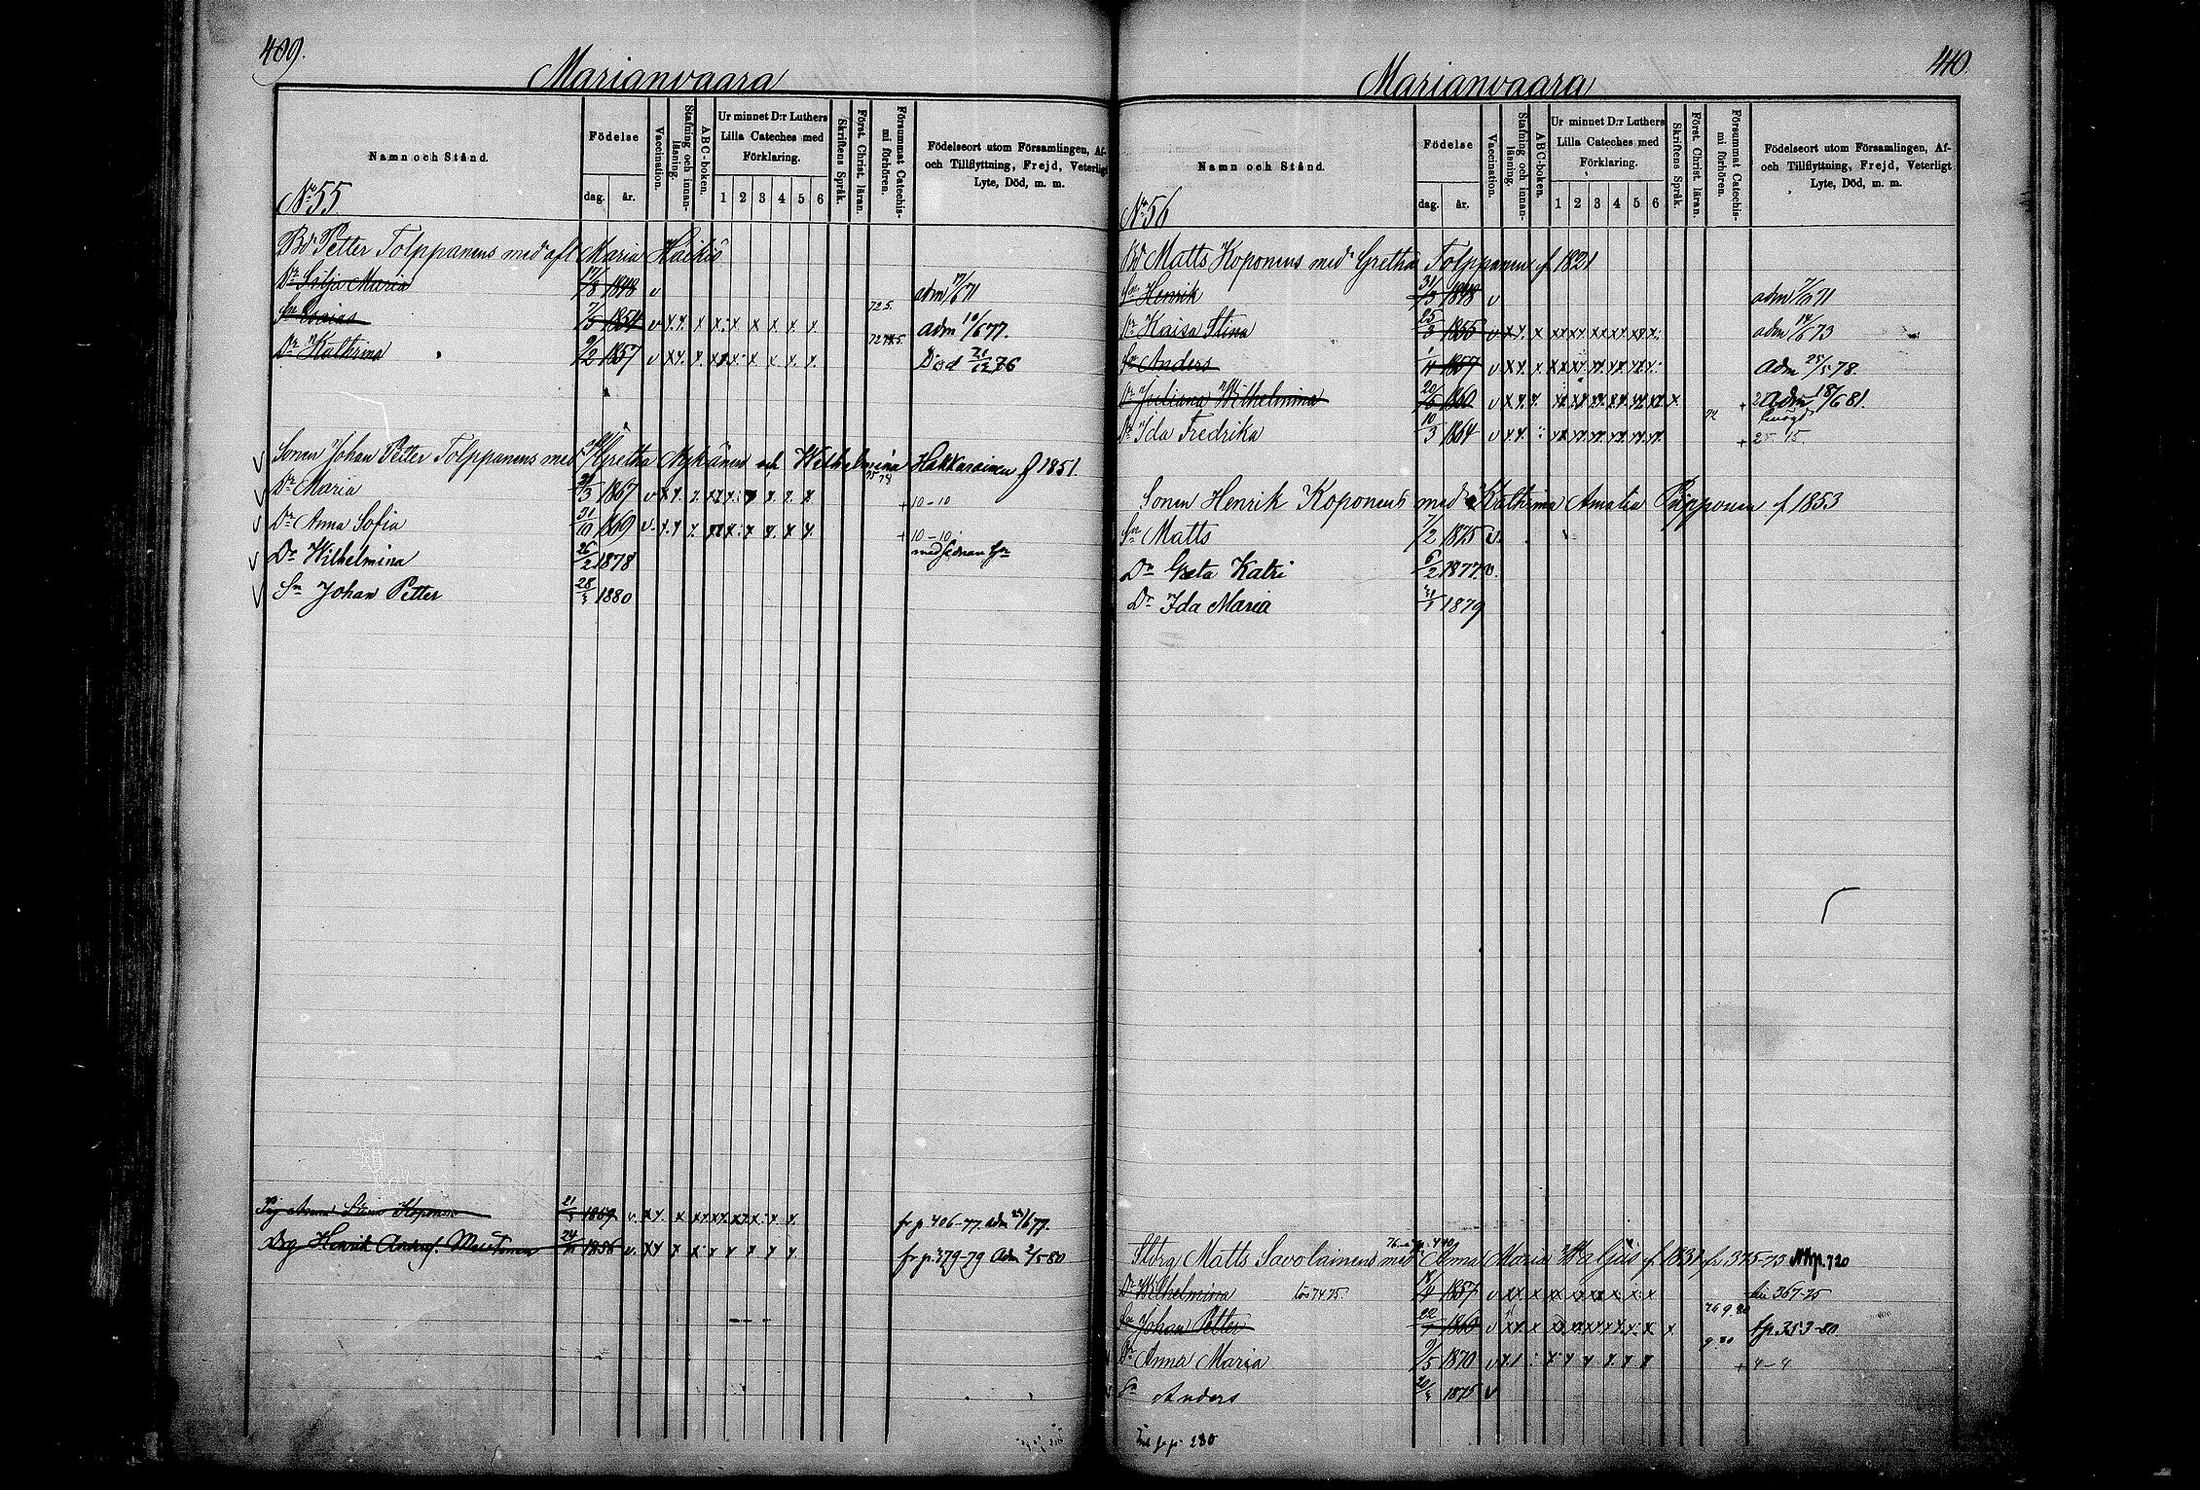 409.
Marianvaara
Namn och Stånd.
Födelse
dag. år.
Vaccination.
Stafning och innan-läsning.
ABC-boken.
Ur minnet D:r Luthers
Lilla Cateches med
Förklaring.
1 2 3 4 5 6
Skriftens Språk.
Först. Christ. läran.
Försummat Catechis-mi förhören.
Födelseort utom Församlingen, Af-
och Tillflyttning, Frejd, Veterligt
Lyte, Död, m. m.
No 55
Bd Petter Tolppanens med afl Maria Häikiö
Dr Silja Maria 1848 v adm 71
Sn Esaias 7/5 1854 v x x. x x. x x x x x. 725. adm 10/6 77.
Dr Kathrina 9/2 1857 v x x. x. x x x x. x. x. Död 21/12 76
Sonen Johan Petter Tolppanens med Gretha Nykänen och Wilhelmina Hakkarainen f 1851.
Dr Maria 1867 v + 10-10
Dr Anna Sofia 31/10 1869 v. + 10-10
Dr Wilhelmina 26/2 1878 med sednan hu
Sn Johan Petter 1880
Pig Anna Stina Koponen 1859 v. fr p. 406-77. adm 24/6 77.
Drg Henrik 1856 v. fr p. 379-79 Adm 2/5 80
440.
Marianvaara
Namn och Stånd.
Födelse
dag. år.
Vaccination.
Stafning och innan-läsning.
ABC-boken.
Ur minnet D:r Luthers
Lilla Cateches med
Förklaring.
1 2 3 4 5 6
Skriftens Språk.
Först. Christ. läran.
Försummat Catechis-mi förhören.
Födelseort utom Församlingen, Af-
och Tillflyttning, Frejd, Veterligt
Lyte, Död, m. m.
No 56
Bd Matts Koponens med Gretha Tolppanen f 1821
Sn Henrik 1848 v adm 71
Dr Kaisa Stina 25/3 1855 v adm 14/6 73
Sn Anders 1/4 1857 v adm 25/5 78.
Dr Juliana Wilhelmina 1860 v adm 18/6 81.
Dr Ida Fredrika 10/3 1864 v + 25 15
Sonen Henrik Koponens med Kathrina Amalia Pipponen f 1853
Sn Matts 7/2 1875 v.
Dr Greta Katri 6/2 1877 v.
Dr Ida Maria 1879
Matts Savolainens med Anna Maria f 1831 fr 375-73 p. 720
Dr Wilhelmina 1857 v 367-75
Sn Johan Petter 1860 v p. 353-80.
Dr Anna Maria 9/5 1870 v + 4-4
Sn Anders 1875 v
fr p. 280